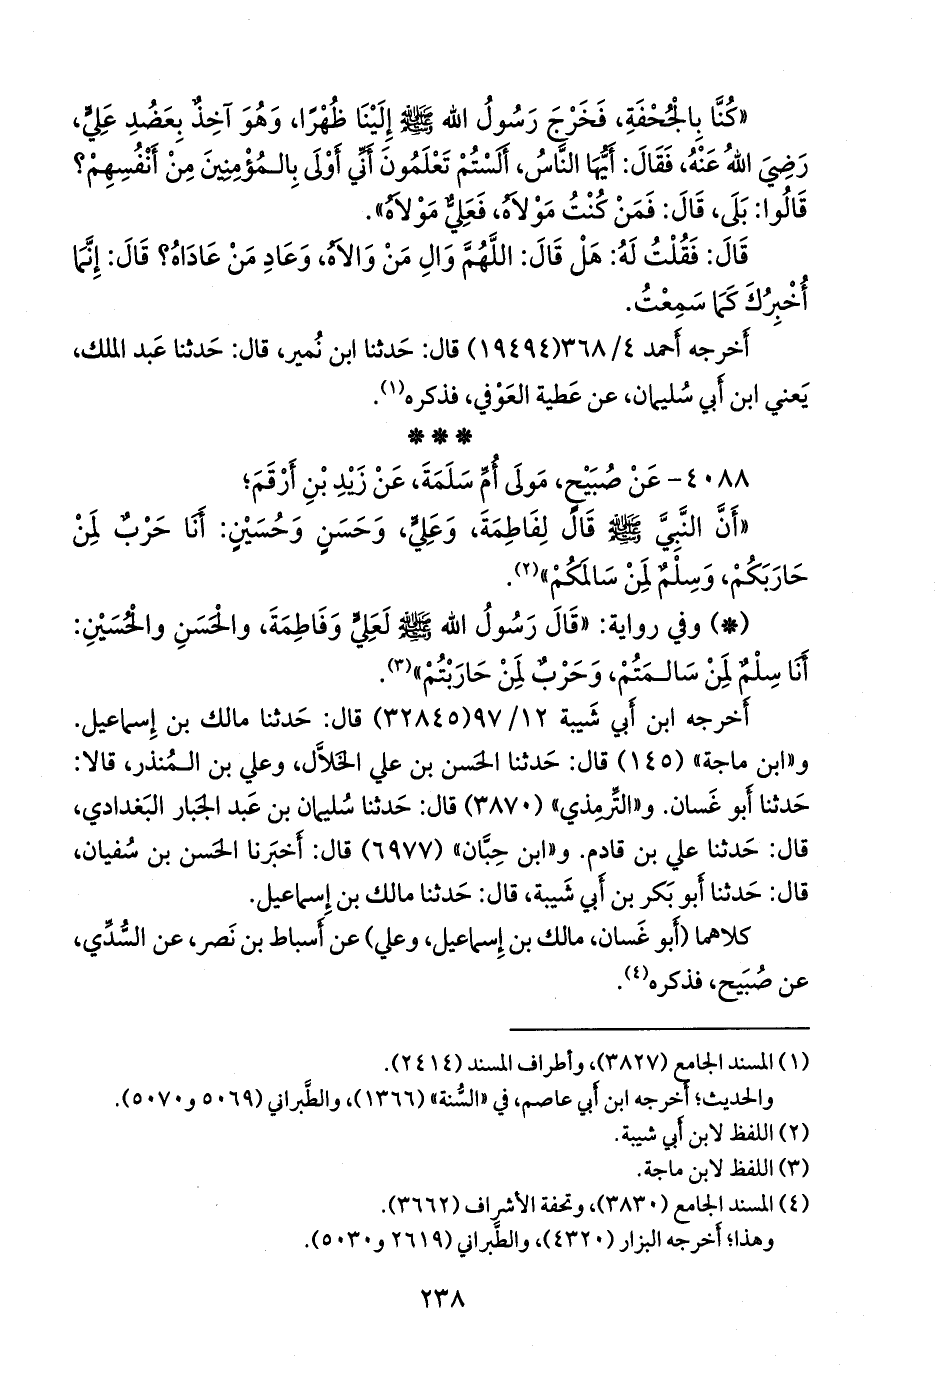 «كُنَّا بِالْجُحْفَةِ، فَخَرْجَ رَسُولُ الله ﷺ إِلَيْنَا ظُهْرًا، وَهُوَ آخِذٌ بِعَضُدِ عَلِيٍّ،
رَضِيَ اللهُ عَنْهُ، فَقَالَ: أَيُّهَا النَّاسُ، أَلَسْتُمْ تَعْلَمُونَ أَنِّي أَوْلَى بِالـمُؤْمِنِينَ مِنْ أَنْفُسِهِمْ؟
قَالُوا: بَلَى، قَالَ: فَمَنْ كُنْتُ مَوْلاَهُ، فَعَلِيٌّ مَوْلاَهُ».
قَالَ: فَقُلْتُ لَهُ: هَلْ قَالَ: اللَّهُمَّ وَالِ مَنْ وَالاَهُ، وَعَادِ مَنْ عَادَاهُ؟ قَالَ: إِنَّمَا
أُخْبِرُكَ كَمَا سَمِعْتُ.
أَخرجه أَحمد ٤/ ٣٦٨(١٩٤٩٤) قال: حَدثنا ابن نُمير، قال: حَدثنا عَبد الملك،
يَعني ابن أَبي سُليمان، عن عَطية العَوْفي، فذكره(١).
* * *
٤٠٨٨- عَنْ صُبَيْحٍ، مَولَى أُمِّ سَلَمَةَ، عَنْ زَيْدِ بْنِ أَرْقَمَ؛
«أَنَّ النَّبِيَّ ﷺ قَالَ لِفَاطِمَةَ، وَعَلِيٍّ، وَحَسَنٍ وَحُسَيْنٍ: أَنَا حَرْبٌ لِمَنْ
حَارَبَكُمْ، وَسِلْمٌ لِمَنْ سَالَمَكُمْ»(٢).
(*) وفي رواية: «قَالَ رَسُولُ الله ﷺ لَعَلِيٍّ وَفَاطِمَةَ، والْحَسَنِ والْحُسَيْنِ:
أَنَا سِلْمٌ لِمَنْ سَالـمَتُمْ، وَحَرْبٌ لِمَنْ حَارَبْتُمْ»(٣).
أَخرجه ابن أَبي شَيبة ١٢/ ٩٧(٣٢٨٤٥) قال: حَدثنا مالك بن إِسماعيل.
و«ابن ماجة» (١٤٥) قال: حَدثنا الحَسن بن علي الخَلاَّل، وعلي بن الـمُنذر، قالا:
حَدثنا أَبو غَسان. و«التِّرمِذي» (٣٨٧٠) قال: حَدثنا سُليمان بن عَبد الجَبار البَغدادي،
قال: حَدثنا علي بن قادم. و«ابن حِبَّان» (٦٩٧٧) قال: أَخبَرنا الحَسن بن سُفيان،
قال: حَدثنا أَبو بَكر بن أَبي شَيبة، قال: حَدثنا مالك بن إِسماعيل.
كلاهما (أَبو غَسان، مالك بن إِسماعيل، وعلي) عن أَسباط بن نَصر، عن السُّدِّي،
عن صُبَيح، فذكره(٤).
(١) المسند الجامع (٣٨٢٧)، وأطراف المسند (٢٤١٤).
والحديث؛ أَخرجه ابن أَبي عاصم، في «السُّنة» (١٣٦٦)، والطَّبراني (٥٠٦٩ و٥٠٧٠).
(٢) اللفظ لابن أَبي شيبة.
(٣) اللفظ لابن ماجة.
(٤) المسند الجامع (٣٨٣٠)، وتحفة الأشراف (٣٦٦٢).
وهذا؛ أَخرجه البزار (٤٣٢٠)، والطَّبراني (٢٦١٩ و٥٠٣٠).
٢٣٨